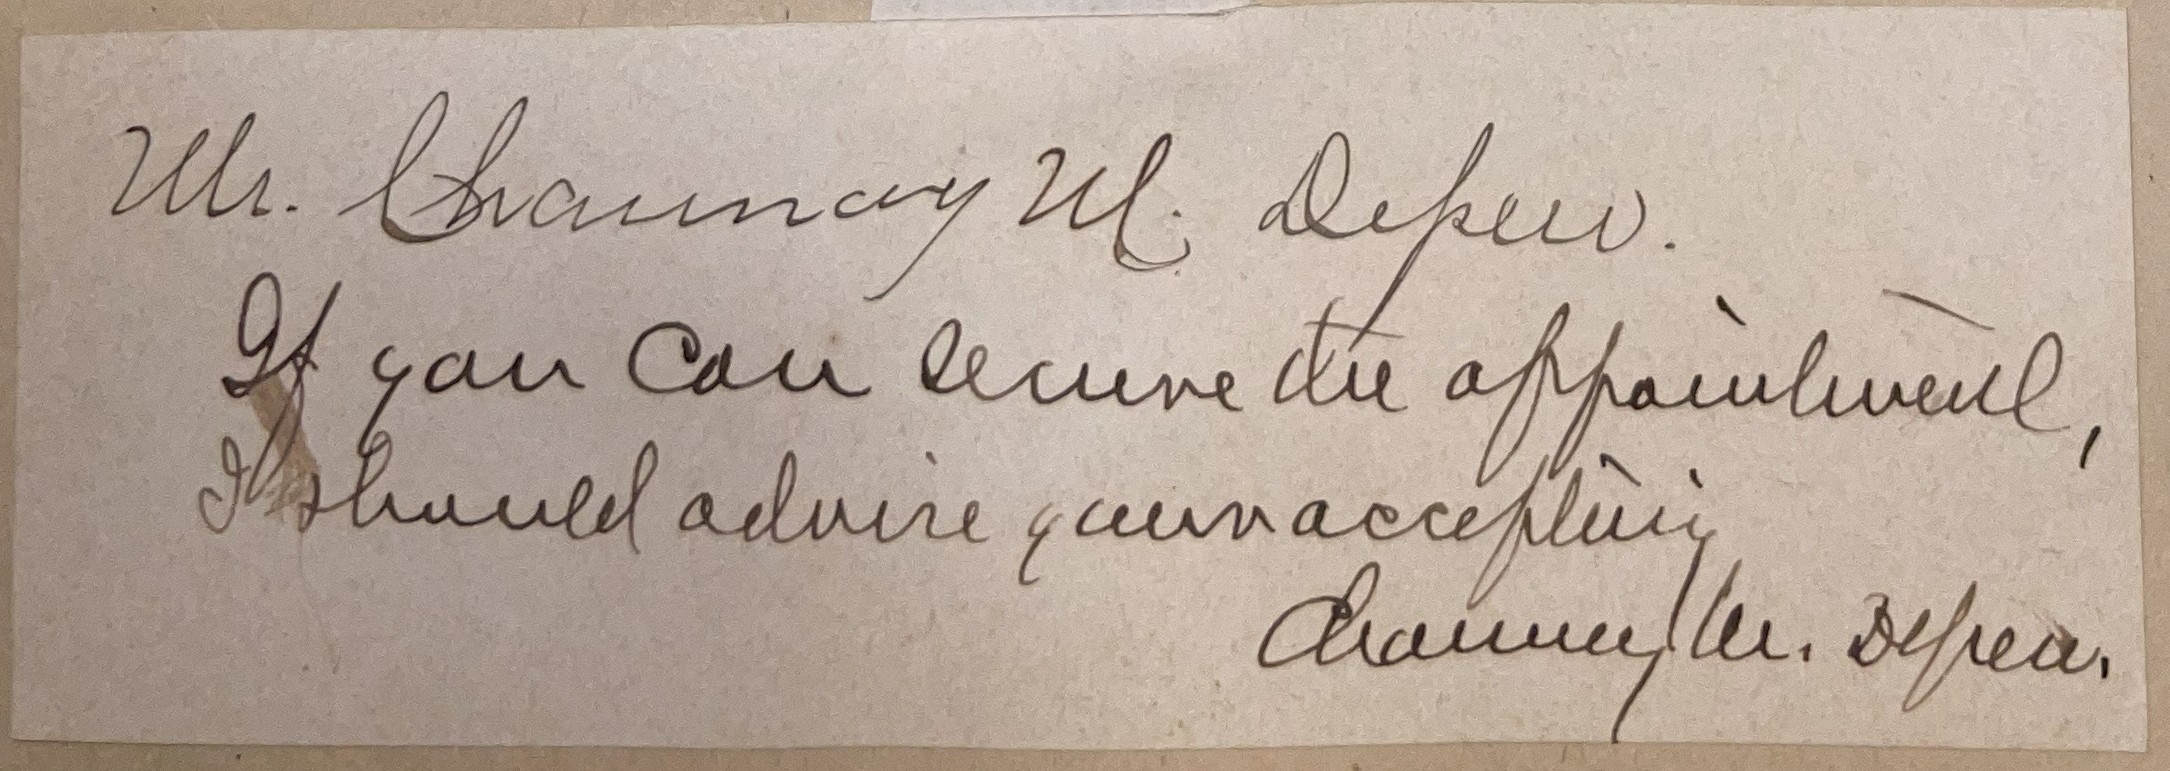 Mr. Chaunacy M. Depew.
If you can secure the appointment,
I should advise your accepting
Chauncey M. Depew.